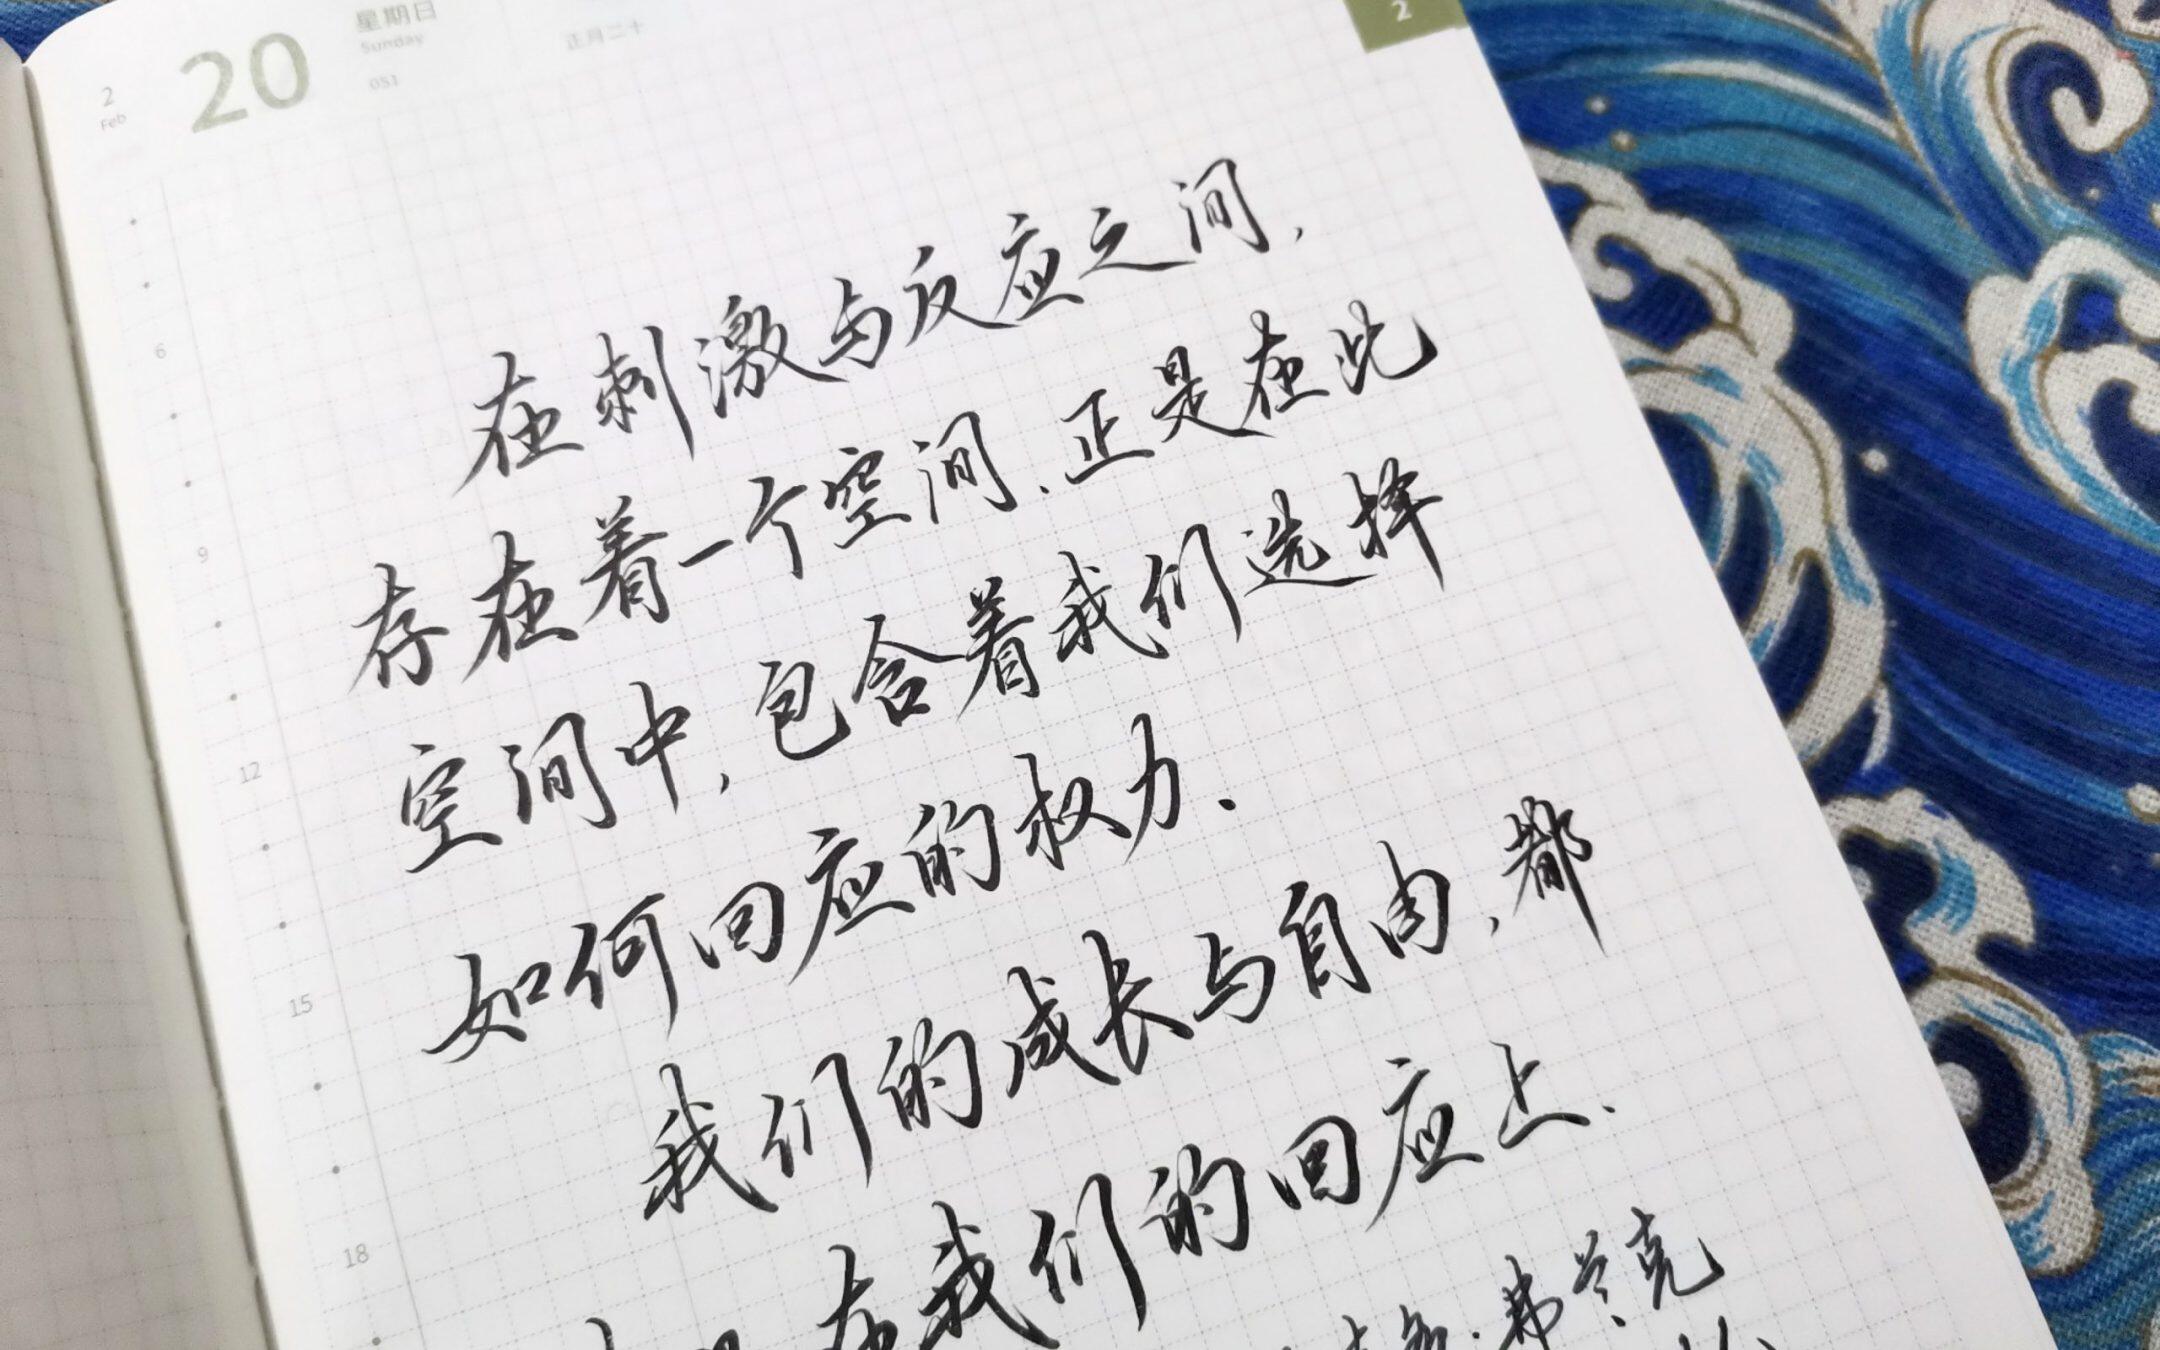 2
Feb
20
星期日
Sunday
051
正月二十
2
6
9
12
15
18
在刺激与反应之间，
存在着一个空间，正是在此
空间中，包含着我们选择
如何回应的权力。
我们的成长与自由，都
在我们的回应上。
·弗兰克